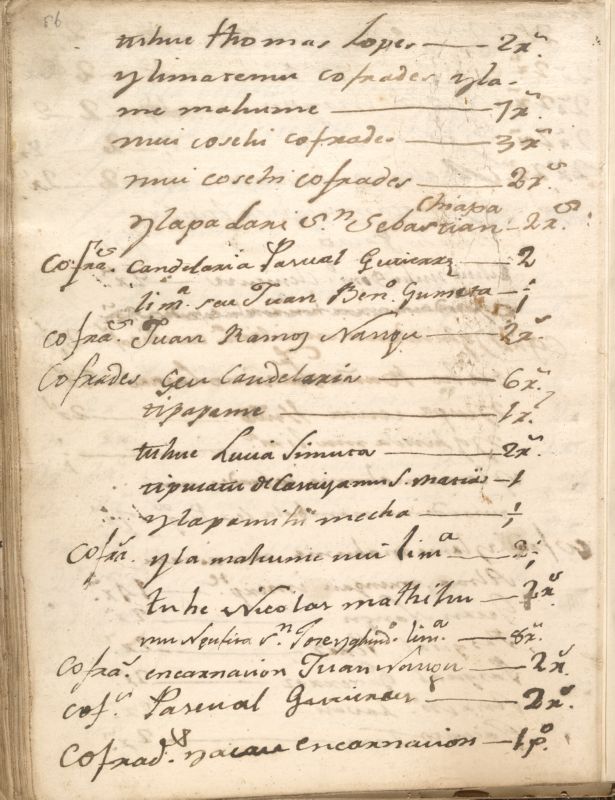 56
tuhue thomas Lopes — 2rˢ
yhimaremu cofrades yla-
me mahume — 7rˢ
mui cosehi cofrades — 3rˢ
mui cosehi cofrades — 2rˢ
Chiapa
ylapa dani S.ⁿ Sebastian — 2rˢ.
cofrª. Candelaria Pasqual Gutierrez — 2
lim.ª seu Juan Ben.º Gumeta — ½
cofrª. Juan Ramos Nangu — 2rˢ.
Cofrades seu Candelaria — 6rˢ.
tipapame — 1r
tuhue Lucia Simuta — 2rˢ.
S. Maria — 1
ylapamihi mecha — ½
Cofrª. yla mahume nui lim.ª — 2½
tuhe Nicolas mathihu — 2rˢ.
S.ⁿ Joseph lim.ª — 8rˢ.
Cofrª. encarnacion Juan Nangu — 2rˢ.
cofˢ. Pasqual Gutierres — 2rˢ.
Cofrad.ˢ encarnacion — 1pº